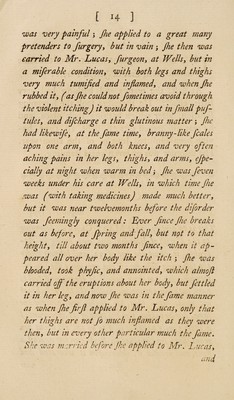 [ 14 ]
was very painful ; ſhe applied to a great many
pretenders to ſurgery, but in vain ; ſhe then was
carried to Mr. Lucas, ſurgeon, at Wells, but in
a miſerable condition, with both legs and thighs
very much tumified and inflamed, and when ſhe
rubbed it, (as ſhe could not ſometimes avoid through
the violent itching) it would break out in ſmall puſ-
tules, and diſcharge a thin glutinous matter ; ſhe
had likewiſe, at the ſame time, branny-like ſcales
upon one arm, and both knees, and very often
aching pains in her legs, thighs, and arms, eſpe-
cially at night when warm in bed ; ſhe was ſeven
weeks under his care at Wells, in which time ſhe
was (with taking medicines) made much better,
but it was near twelvemonths before the diſorder
was ſeemingly conquered : Ever ſince ſhe breaks
out as before, at ſpring and fall, but not to that
height, till about two months ſince, when it ap-
peared all over her body like the itch ; ſhe was
blooded, took phyſic, and annointed, which almoſt
carried off the eruptions about her body, but ſettled
it in her leg, and now ſhe was in the ſame manner
as when ſhe firſt applied to Mr. Lucas, only that
her thighs are not ſo much inflamed as they were
then, but in every other particular much the ſame.
She was married before ſhe applied to Mr. Lucas,
and